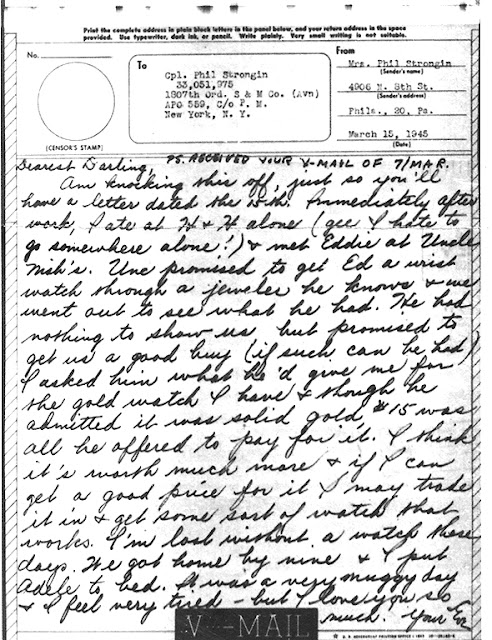 Print the complete address in plain block letters in the panel below, and your return address in the space
provided. Use typewriter, dark ink, or pencil. Write plainly. Very small writing is not suitable.
No.
(CENSOR'S STAMP)
To
Cpl. Phil Strongin
33,051,975
1807th Ord. S & M Co. (Avn)
APO 559, C/o P. M.
New York, N. Y.
From
Mrs. Phil Strongin
(Sender's name)
4906 N. 8th St.
(Sender's address)
Phila., 20, Pa.
March 15, 1945
(Date)
Dearest Darling, PS. RECEIVED YOUR V-MAIL OF 7/MAR.
Am knocking this off, just so you'll
have a letter dated the 15th. Immediately after
work, I ate at H & H alone (gee I hate to
go somewhere alone!) & met Eddie at Uncle
Nish's. Unc promised to get Ed a wrist
watch through a jeweler he knows & we
went out to see what he had. He had
nothing to show us, but promised to
get us a good buy (if such can be had)
I asked him what he'd give me for
the gold watch I have & though he
admitted it was solid gold, $15 was
all he offered to pay for it. I think
it's worth much more & if I can
get a good price for it I may trade
it in & get some sort of watch that
works. I'm lost without a watch these
days. We got home by nine & I put
Adele to bed. It was a very muggy day
& I feel very tired - but I love you so
much. Your Ev
V···—MAIL
U. S. GOVERNMENT PRINTING OFFICE